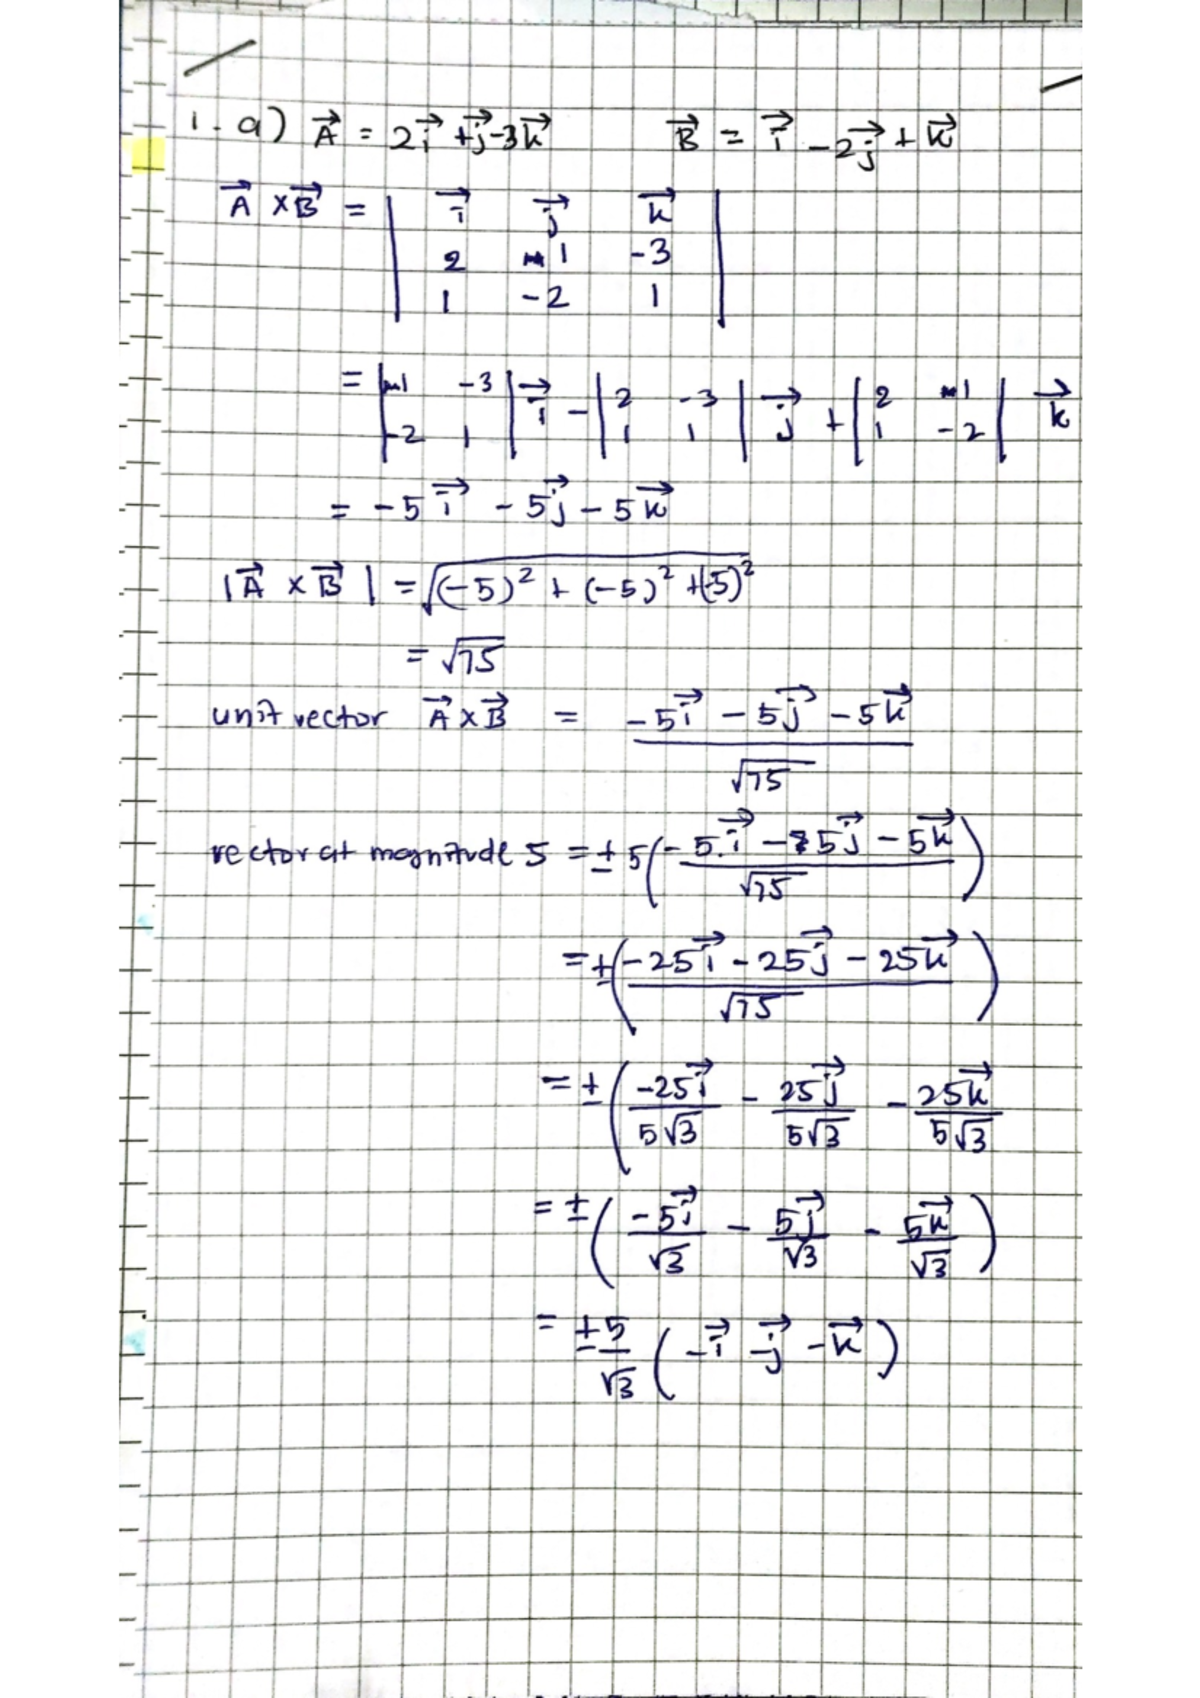 1. a) A⃗ = 2i⃗ + j⃗ - 3k⃗    B⃗ = i⃗ - 2j⃗ + k⃗
A⃗ × B⃗ = | i⃗ j⃗ k⃗ |
| 2 1 -3 |
| 1 -2 1 |
= | 1 -3 | i⃗ - | 2 -3 | j⃗ + | 2 1 | k⃗
| -2 1 | | 1 1 | | 1 -2 |
= -5i⃗ - 5j⃗ - 5k⃗
|A⃗ × B⃗| = √((-5)² + (-5)² + (-5)²)
= √75
unit vector A⃗ × B⃗ = (-5i⃗ - 5j⃗ - 5k⃗)/√75
vector at magnitude 5 = ± 5((-5i⃗ - 5j⃗ - 5k⃗)/√75)
= ±((-25i⃗ - 25j⃗ - 25k⃗)/√75)
= ±(-25i⃗/5√3 - 25j⃗/5√3 - 25k⃗/5√3
= ±(-5i⃗/√3 - 5j⃗/√3 - 5k⃗/√3)
= ±5/√3 (-i⃗ - j⃗ - k⃗)